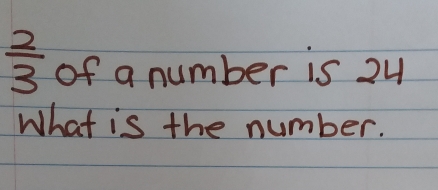 2/3 of a number is 24
What is the number.